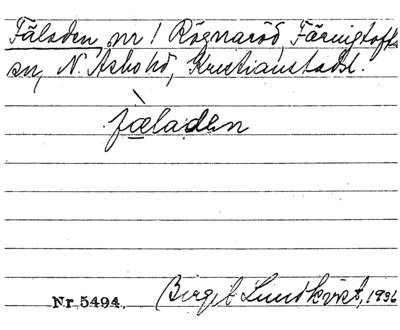 Fäladen, nr 1 Rågnaröd, Färingtofta
sn, N. Åsbo hd, Kristianstads l.
fæ̀laden
Nr 5494. Birgit Lundkvist, 1936